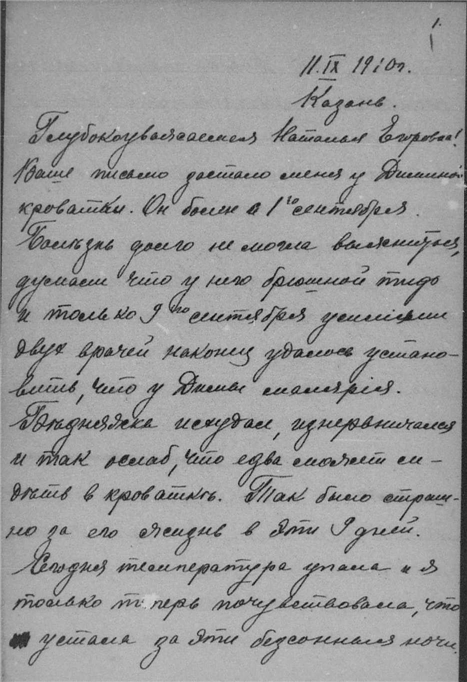 1.
11.IX 1910г.
Казань.
Глубокоуважаемая Наталья Егоровна!
Ваше письмо застало меня у Диминой
кроватки. Он болен с 1го сентября.
Болѣзнь долго не могла выясниться,
думали что у него брюшной тифъ
и только 9го сентября усиліями
двух врачей наконец удалось устано-
вить, что у Димы малярія.
Бѣдняжка исхудал, изнервничался
и так ослаб, что едва может си-
дѣть в кроваткѣ. Так было страш-
но за его жизнь в эти 9 дней.
Сегодня температура упала и я
только теперь почувствовала, что
устала за эти безсонныя ночи.